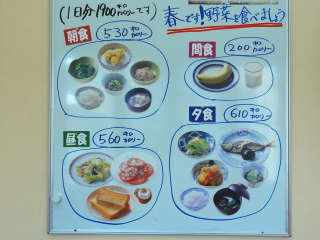 (1日分1900キロカロリーです)
春です!野菜を食べましょう
朝食 530キロカロリー
間食 200キロカロリー
昼食 560キロカロリー
夕食 610キロカロリー